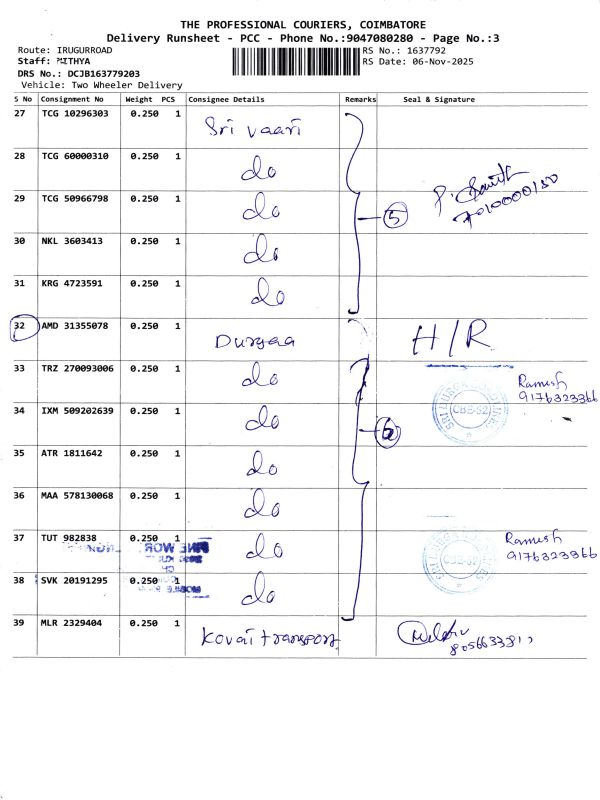 THE PROFESSIONAL COURIERS, COIMBATORE
Delivery Runsheet - PCC - Phone No.:9047080280 - Page No.:3
Route: IRUGURROAD RS No.: 1637792
Staff: NITHYA RS Date: 06-Nov-2025
DRS No.: DCJB163779203
Vehicle: Two Wheeler Delivery
S No Consignment No Weight PCS Consignee Details Remarks Seal & Signature
27 TCG 10296303 0.250 1 Sri vaari
28 TCG 60000310 0.250 1 do
29 TCG 50966798 0.250 1 do 5
30 NKL 3603413 0.250 1 do
31 KRG 4723591 0.250 1 do
32 AMD 31355078 0.250 1 Durgaa H/R
33 TRZ 270093006 0.250 1 do Ramesh
9176323366
34 IXM 509202639 0.250 1 do 6 CBE-62
35 ATR 1811642 0.250 1 do
36 MAA 578130068 0.250 1 do
37 TUT 982838 0.250 1 do Ramesh
9176323366
38 SVK 20191295 0.250 1 do
39 MLR 2329404 0.250 1 Kovai transport